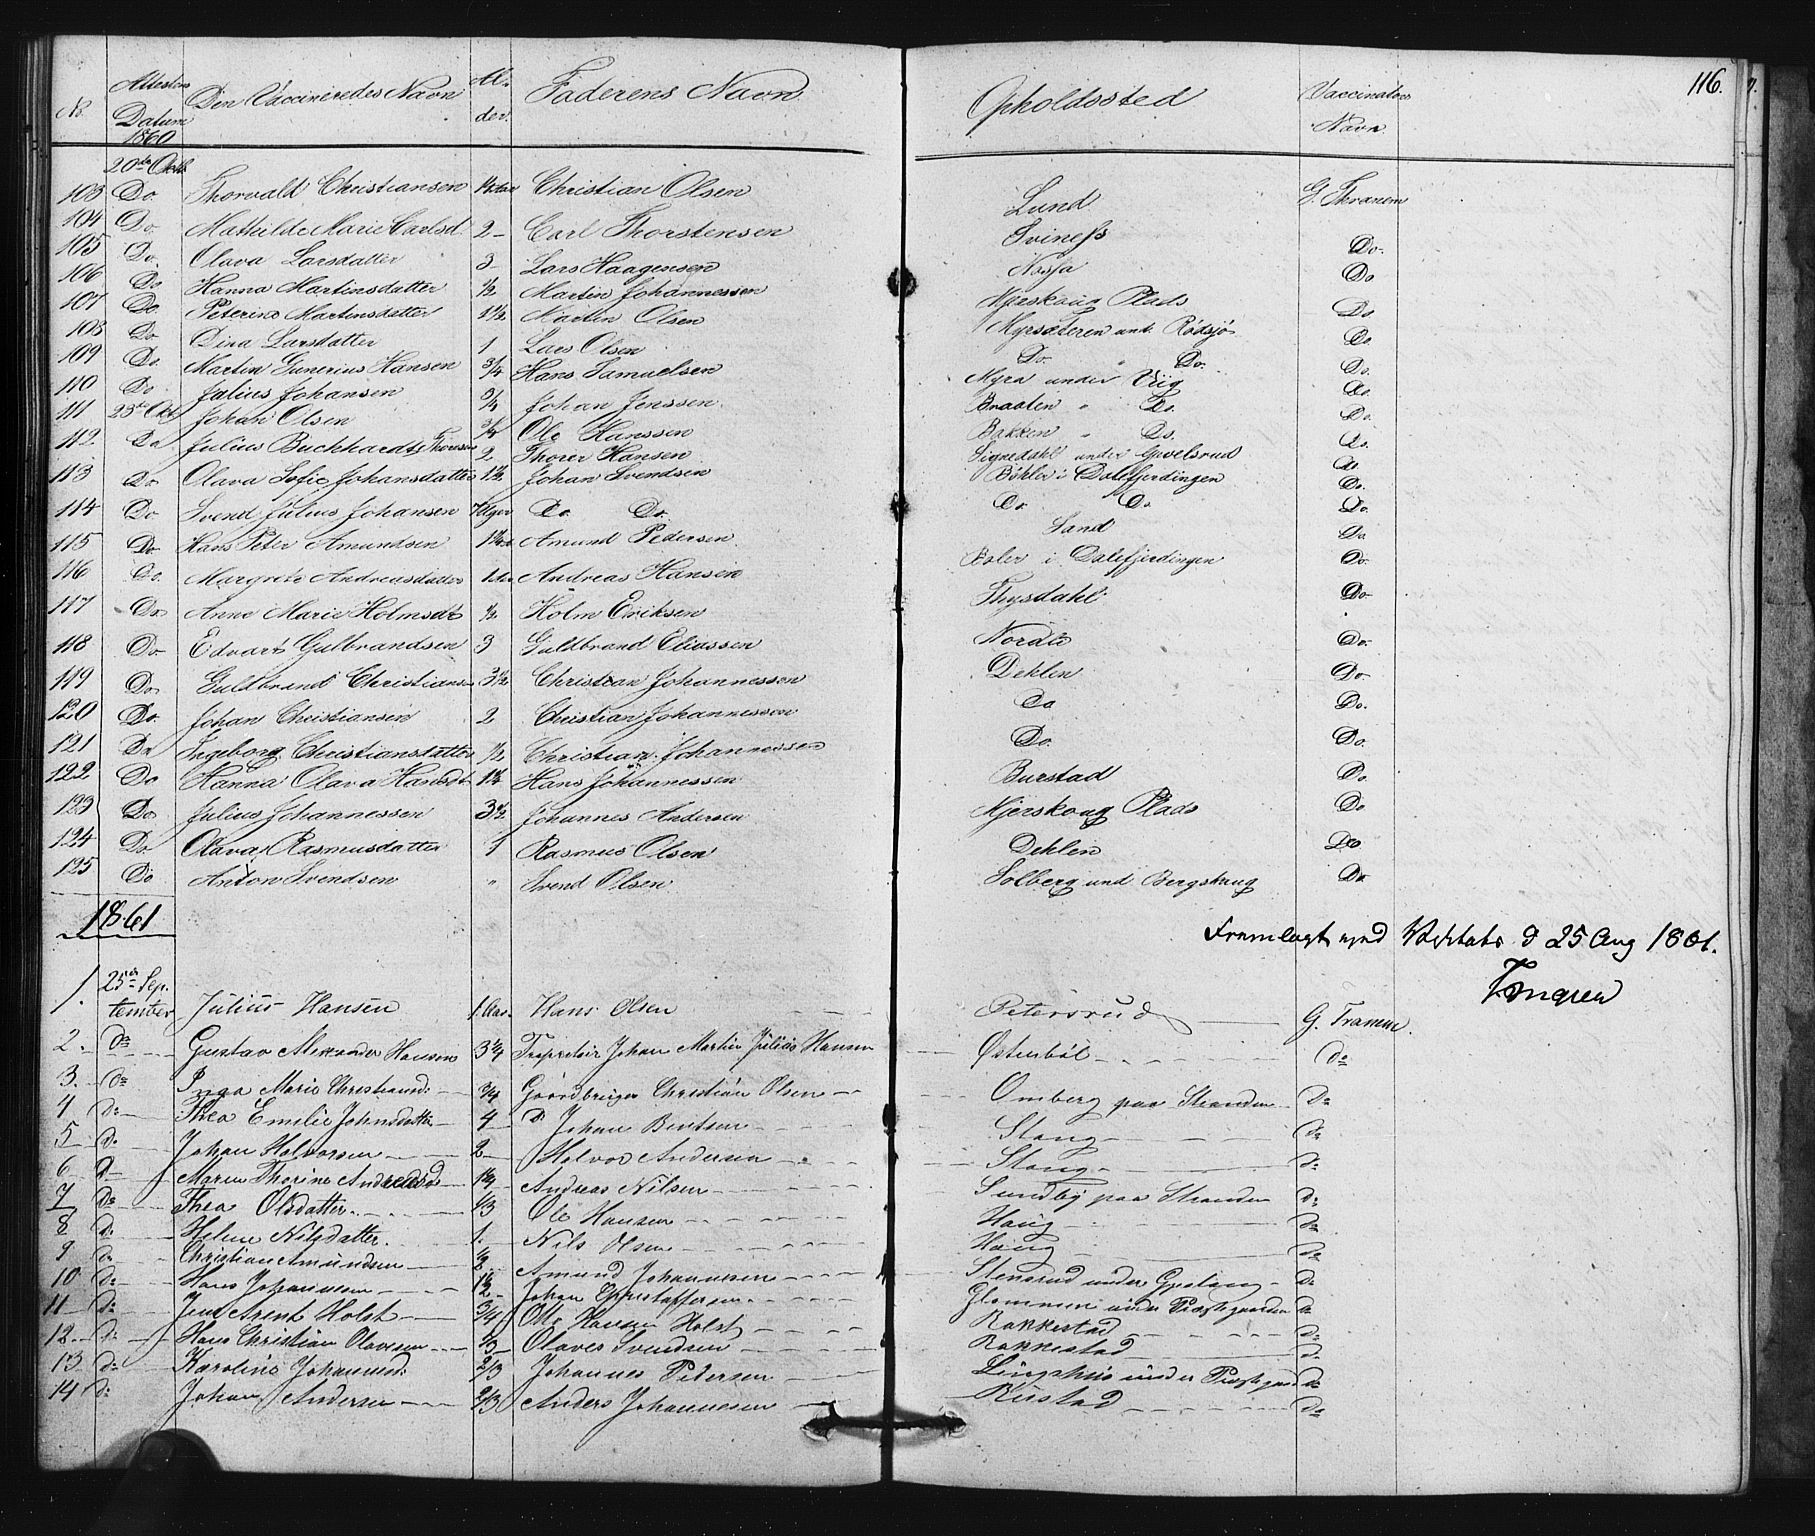 116.
No. Attestens Datum Den Vaccineredes Navn Alder. Faderens Navn Opholdssted Vaccinators Navn
1860
20de Octb
103 Do. Thorvald Christiansen Christian Olsen Lund G. Thranem
104 Do. Mathilde Marie Carlsd. 2 - Carl Thorstensen Svinefs Do.
105 Do. Olava Larsdatter 3 Lars Haagensen Do
106 Do Hanna Martinsdatter 1/2 Martin Johannessen Plads Do.
107 Do. Peterine Martinsdatter 1 1/2 Martin Olsen Myrsæteren unt. Rødsjø Do.
108 Do Dina Larsdatter 1 Lars Olsen Do. " Do. Do.
109 Do. Martin Gunerius Hansen 3/4 Hans Samuelsen Myra under Viig Do.
110 Do Julius Johansen Johan Jenssen. Braaten " Do. Do.
111 23de Okt Johan Olsen 3/4 Ole Hanssen Bakken " Do. Do.
112 Do Julius Buchhardt Thoresen 2 Thorer Hansen Signedahl under Gevelsrud Do.
113 Do Olava Sofie Johansdatter 1 1/2 Johan Svendsen Bøhler i Dalefjerdingen Do.
114 Do Svend Julius Johansen 7 Uger Do. Do. Do. Do. Do.
115 Do Hans Peter Amundsen Amund Pedersen. Sand Do
116 Do. Margrete Andreasdatter Andreas Hansen Bøler i Dalefjerdingen Do.
117 Do Anne Marie Holmsdt 1/2 Holm Eriksen Thysdahl Do
118 Do Edvart Gulbrandsen 3 Guldbrand Eliassen Nordli Do.
119 Do Guldbrand Christiansen 3 1/2 Christian Johannessen Dehlen Do
120 Do. Johan Christiansen 2 Christian Johannessen Do Do.
121 Do Ingeborg Christiansdatter 1/2 Christian Johannessen Do. Do.
122 Do Hanna Olava Hansdt. Hans Johannessen Burstad Do.
123 Do Julius Johannessen 3 1/2 Johannes Andersen Mjerskoug Plads Do
124 Do. Olava Rasmusdatter 1 Rasmus Olsen Dehlen Do
125 Do Anton Svendsen " Svend Olsen Solberg und Bergskaug Do
1861
Fremlagt ved d 25 Aug 1861.
1. 25de September Julius Hansen 1. Aar. Hans Olsen Petersrud G. Tranem.
2. do Gustav Alexander Hansen 3 1/4 Proprietair Johan Martin Julius Hansen Østenbøl do
3. do Inga Marie Christiansd. 3/4 Gaardbruger Christian Olsen Omberg paa Stranden do
4 do Thea Emilie Johnsdatter 4 do Johan Berntsen Stang do
5 do Johan Halvorsen 2 Halvor Andersen Stang do
6 do Maren Therine Andreasd. 1 1/4 Andreas Nilsen Sundby paa Stranden do
7. do Thea Olsdatter. 1/3 Ole Hansen Haug do
8 do Helene Nilsdatter. 1. Nils Olsen Haug do
9 do Christian Amundsen 1/2 Amund Johannesen Stensrud under do
10 do Hans Johannesen 1 1/2 Johan Christoffersen Glommen under Præstgaarden do
11 do Jens Arent Holst 3/4 Otto Hansen Holst Rakkestad do
12 do Hans Christian Olavesen 1/3 Olaves Svendsen Rakkestad do
13 do Karoline Johannesd. 2/3 Johannes Pedersen under Præstgaarden do
14 do Johan Andersen 2/3 Anders Johannesen Rustad do